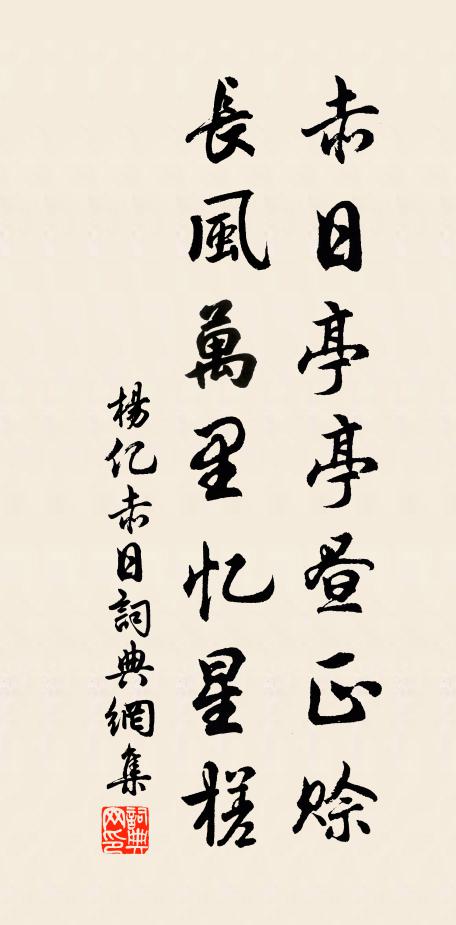 赤日亭亭昼正賒
長風萬里忆星槎
楊亿赤日詞典網集
詞典网印